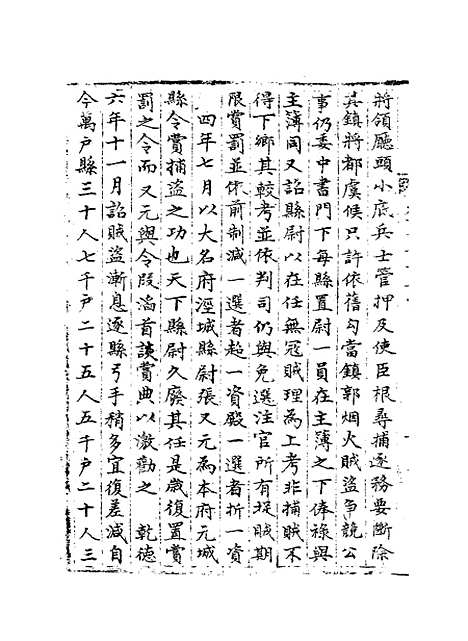 將領廳頭小底兵士管押及使臣根尋捕逐務要斷除
其鎮將都虞候只許依舊勾當鎮郭烟火賊盜爭競公
事仍委中書門下每縣置尉一員在主薄之下俸祿與
主薄同又詔縣尉以在任無寇賊理為上考非捕賊不
得下鄉其較考並依判司仍與免選注官所有捉賊期
限賞罰並依前制减一選者超一資殿一選者折一資
四年七月以大名府涇城縣尉張又元為本府元城
縣令賞捕盜之功也天下縣尉久廢其任是歲復置賞
罰之令而又元與令段滔首該賞典以激勸之　乾德
六年十一月詔賊盜漸息逐縣弓手稍多宜復差減自
今萬户縣三十人七千户二十五人五千户二十人三